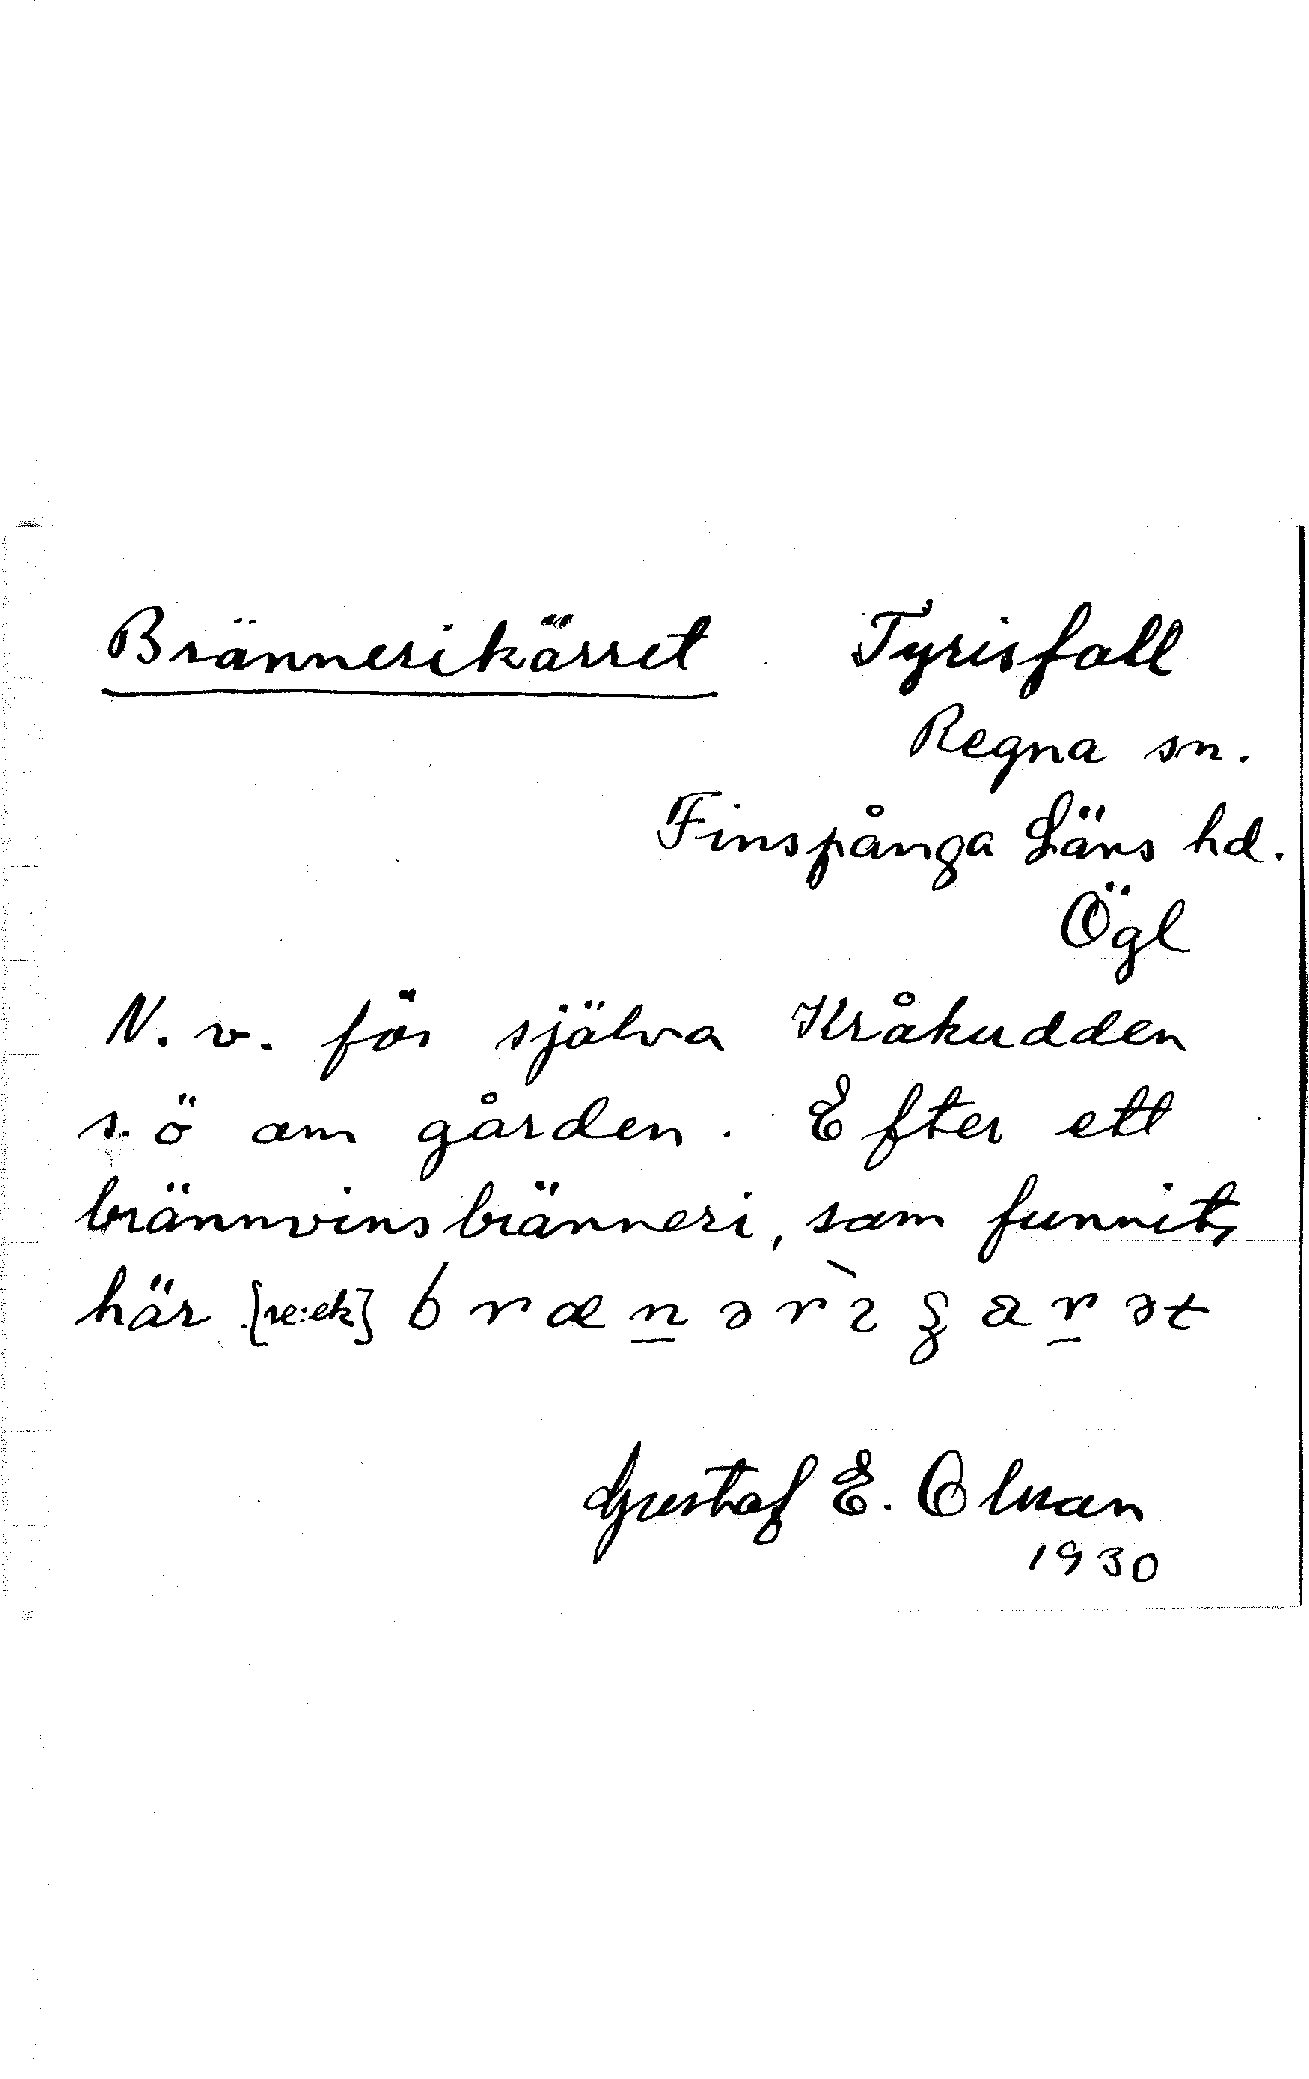 Brännerikärret Tyrisfall
Regna sn.
Finspånga Läns hd.
Ögl
N. v. för själva Kråkudden
s. ö om gården. Efter ett
brännvinsbränneri, som funnits
här [re:ek]
Gustaf E. Olman
1930